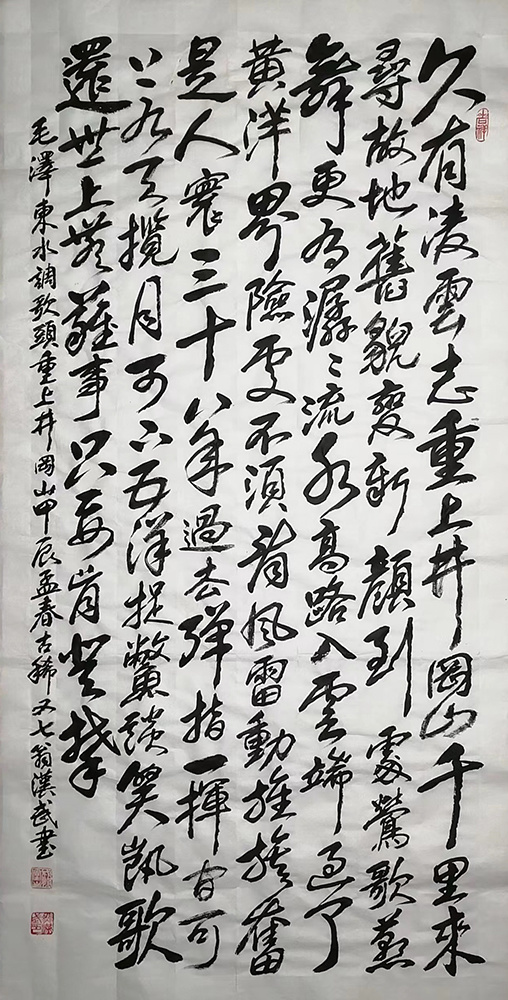 久有凌雲志重上井岡山千里來
尋故地舊貌變新顏到處鶯歌燕
舞更有潺〻流水高路入雲端過了
黃洋界險處不須看風雷動旌旗奮
是人寰三十八年過去彈指一揮間可
上九天攬月可下五洋捉鱉談笑凱歌
還世上無難事只要肯登攀
毛澤東水調歌頭重上井岡山甲辰孟春古稀又七翁漢武書